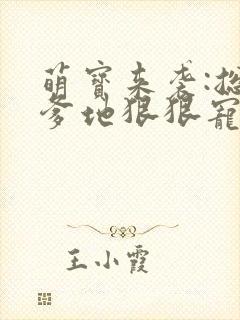 萌寶来袭:总
爹地狠狠寵
王小霞